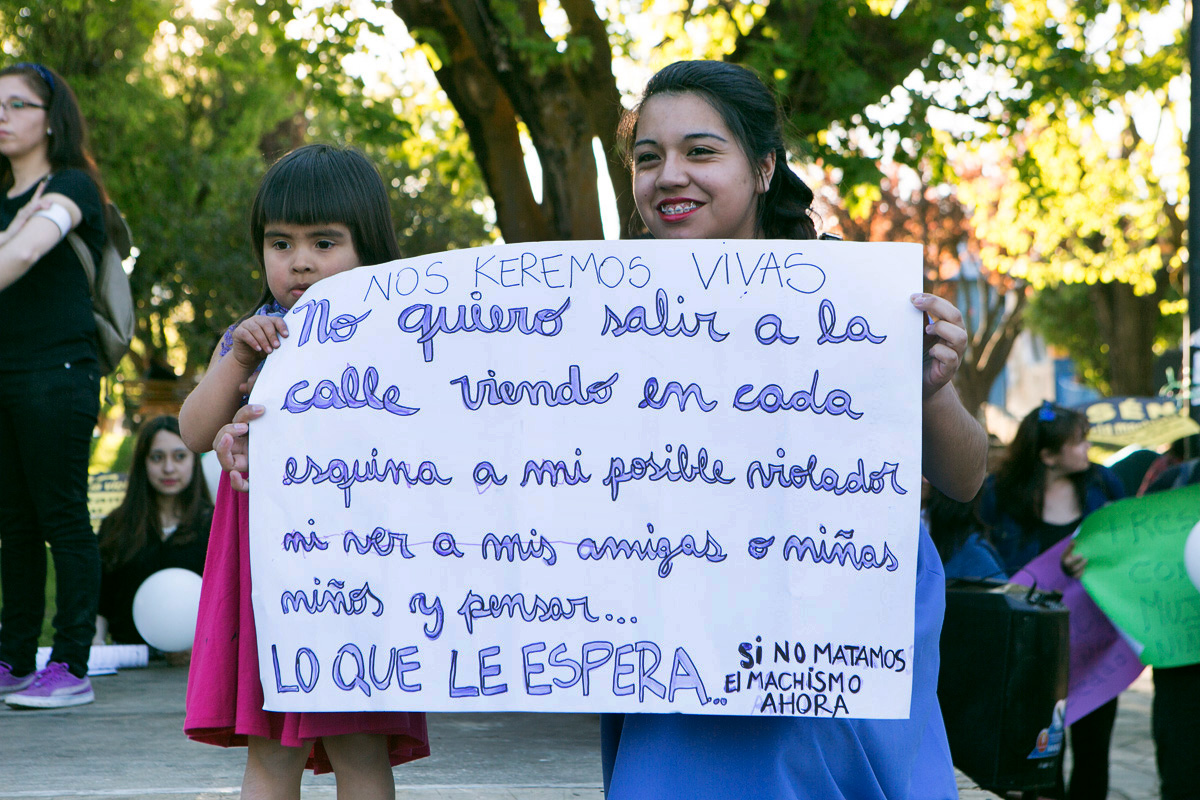 NOS KEREMOS VIVAS
No quiero salir a la
calle viendo en cada
esquina a mi posible violador
ni ver a mis amigas o niñas
niños y pensar...
LO QUE LE ESPERA...
Si NO MATAMOS
El MACHiSMO
AHORA